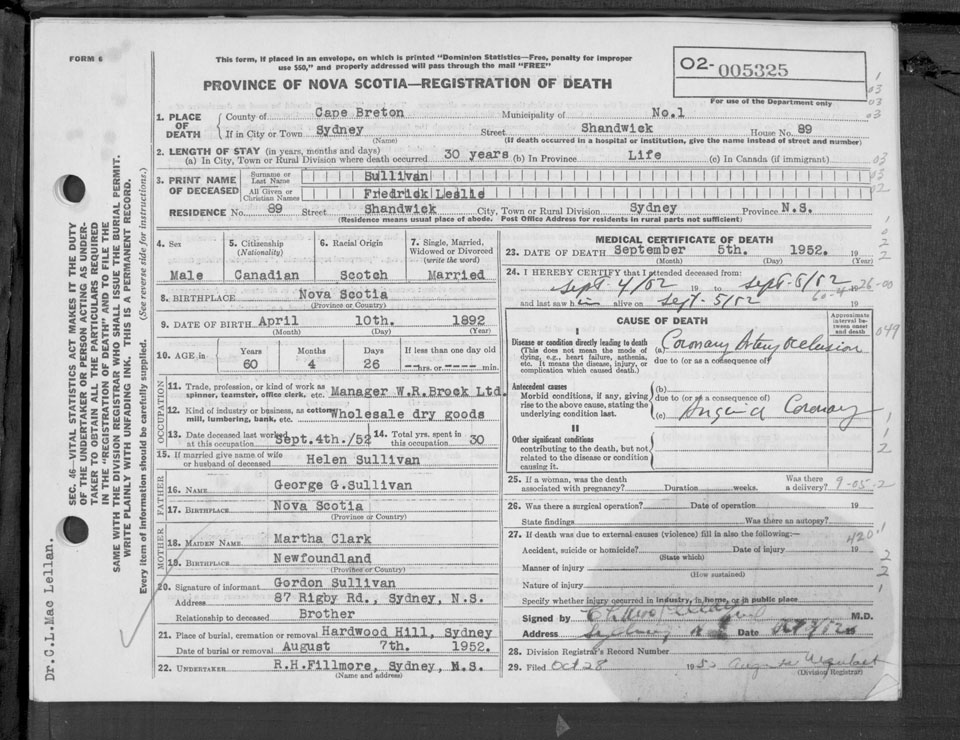 FORM 6
This form, if placed in an envelope, on which is printed "Dominion Statistics—Free, penalty for improper
use $50," and properly addressed will pass through the mail "FREE"
PROVINCE OF NOVA SCOTIA—REGISTRATION OF DEATH
02-005325
For use of the Department only
1. PLACE OF DEATH County of Cape Breton Municipality of No.1
If in City or Town Sydney Street Shandwick House No. 89
(Name) (If death occurred in a hospital or institution, give the name instead of street and number)
2. LENGTH OF STAY (in years, months and days)
(a) In City, Town or Rural Division where death occurred 30 years (b) In Province Life (c) In Canada (if immigrant)
3. PRINT NAME OF DECEASED Surname or Last Name Sullivan
All Given or Christian Names Fredrick Leslie
RESIDENCE No. 89 Street Shandwick City, Town or Rural Division Sydney Province N.S.
(Residence means usual place of abode. Post Office Address for residents in rural parts not sufficient)
4. Sex 5. Citizenship (Nationality) 6. Racial Origin 7. Single, Married, Widowed or Divorced (write the word)
Male Canadian Scotch Married
8. BIRTHPLACE Nova Scotia
(Province or Country)
9. DATE OF BIRTH April 10th. 1892
(Month) (Day) (Year)
10. AGE in Years Months Days If less than one day old
60 4 26 --hrs. or ----- min.
OCCUPATION
11. Trade, profession, or kind of work as spinner, teamster, office clerk, etc. Manager W.R.Brock Ltd.
12. Kind of industry or business, as cotton mill, lumbering, bank, etc. Wholesale dry goods
13. Date deceased last worked at this occupation Sept.4th./52 14. Total yrs. spent in this occupation 30
15. If married give name of wife or husband of deceased Helen Sullivan
FATHER
16. NAME George G.Sullivan
17. BIRTHPLACE Nova Scotia
(Province or Country)
MOTHER
18. MAIDEN NAME Martha Clark
19. BIRTHPLACE Newfoundland
(Province or Country)
20. Signature of informant Gordon Sullivan
Address 87 Rigby Rd., Sydney, N.S.
Relationship to deceased Brother
21. Place of burial, cremation or removal Hardwood Hill, Sydney
Date of burial or removal August 7th. 1952.
22. UNDERTAKER R.H.Fillmore, Sydney, N.S.
(Name and address)
MEDICAL CERTIFICATE OF DEATH
23. DATE OF DEATH September 5th. 1952.
(Month) (Day) (Year)
24. I HEREBY CERTIFY that I attended deceased from:
Sept 4/52 19 to Sept 5/52 19
and last saw him alive on Sept. 5/52 19
60-4-26-00
CAUSE OF DEATH
Approximate interval between onset and death
I
Disease or condition directly leading to death
(This does not mean the mode of dying, e.g., heart failure, asthenia, etc. It means the disease, injury, or complication which caused death.)
(a) Coronary Artery occlusion
due to (or as a consequence of)
Antecedent causes
Morbid conditions, if any, giving rise to the above cause, stating the underlying condition last.
(b)
due to (or as a consequence of)
(c) Angina Coronary
II
Other significant conditions
contributing to the death, but not related to the disease or condition causing it.
049
25. If a woman, was the death associated with pregnancy? Duration weeks. Was there a delivery?
9-05-2
26. Was there a surgical operation? Date of operation 19
State findings Was there an autopsy?
27. If death was due to external causes (violence) fill in also the following:—
420
Accident, suicide or homicide? Date of injury 19
(State which)
Manner of injury
(How sustained)
Nature of injury
Specify whether injury occurred in industry, in home, or in public place
Signed by M.D.
Address Sydney N S Date
28. Division Registrar's Record Number
29. Filed Oct 28 1952
(Division Registrar)
SEC. 46—VITAL STATISTICS ACT MAKES IT THE DUTY
OF THE UNDERTAKER OR PERSON ACTING AS UNDER-
TAKER TO OBTAIN ALL THE PARTICULARS REQUIRED
IN THE "REGISTRATION OF DEATH" AND TO FILE THE
SAME WITH THE DIVISION REGISTRAR WHO SHALL ISSUE THE BURIAL PERMIT.
WRITE PLAINLY WITH UNFADING INK. THIS IS A PERMANENT RECORD.
Every item of information should be carefully supplied. (See reverse side for instructions.)
Dr.C.L.Mac Lellan.